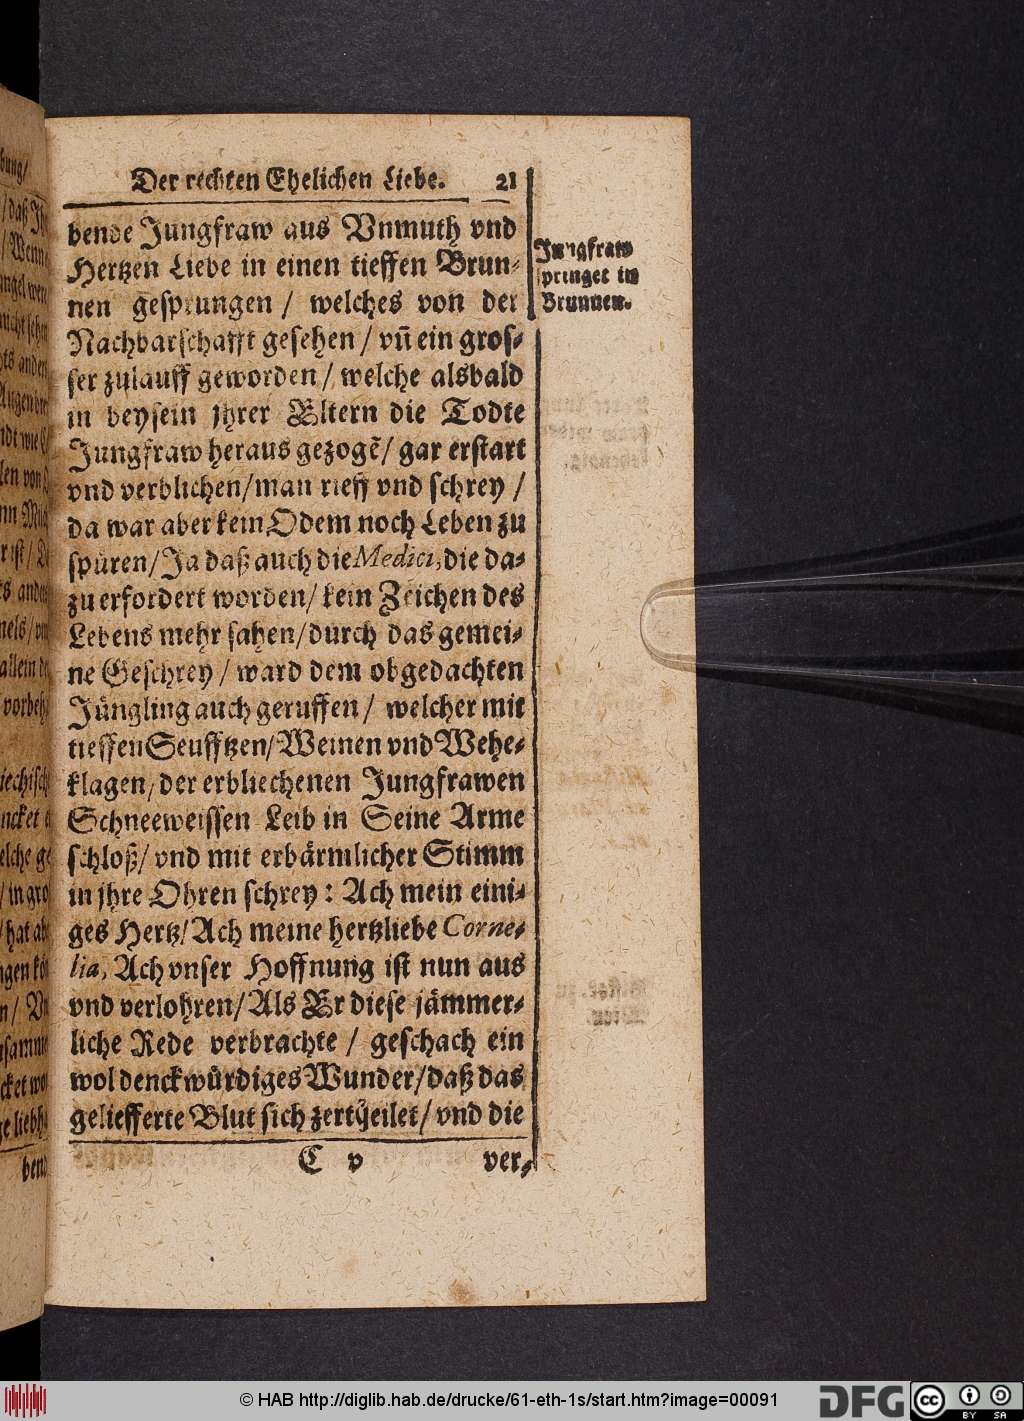 Der rechten Ehelichen Liebe. 21
bende Jungfraw aus Vnmuth vnd
Hertzen Liebe in einen tieffen Brun-
nen gesprungen / welches von der
Nachbarschafft gesehen / vñ ein gros-
ser zulauff geworden / welche alsbald
in beysein jhrer Eltern die Todte
Jungfraw heraus gezogẽ / gar erstart
vnd verblichen / man rieff vnd schrey /
da war aber kein Odem noch Leben zu
spüren / Ja daß auch die Medici, die da-
zu erfordert worden / kein Zeichen des
Lebens mehr sahen / durch das gemei-
ne Geschrey / ward dem obgedachten
Jüngling auch geruffen / welcher mit
tieffen Seufftzen / Weinen vnd Wehe-
klagen, der erbliechenen Jungfrawen
Schneeweissen Leib in Seine Arme
schloß / vnd mit erbärmlicher Stimm
in jhre Ohren schrey : Ach mein eini-
ges Hertz / Ach meine hertzliebe Corne-
lia, Ach vnser Hoffnung ist nun aus
vnd verlohren / Als Er diese jämmer-
liche Rede verbrachte / geschach ein
wol denckwürdiges Wunder / daß das
geliefferte Blut sich zertheilet / vnd die
C v ver-
Jungfraw
springet in
Brunnen.
© HAB http://diglib.hab.de/drucke/61-eth-1s/start.htm?image=00091
DFG
cc
BY SA